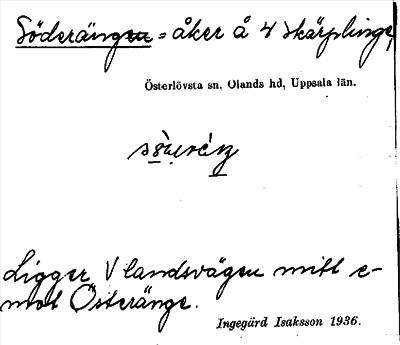 Söderängen = åker å 4 Skärplinge,
Österlövsta sn, Olands hd, Uppsala län.
Ligger V landsvägen mitt e-
mot Österänge.
Ingegärd Isaksson 1936.